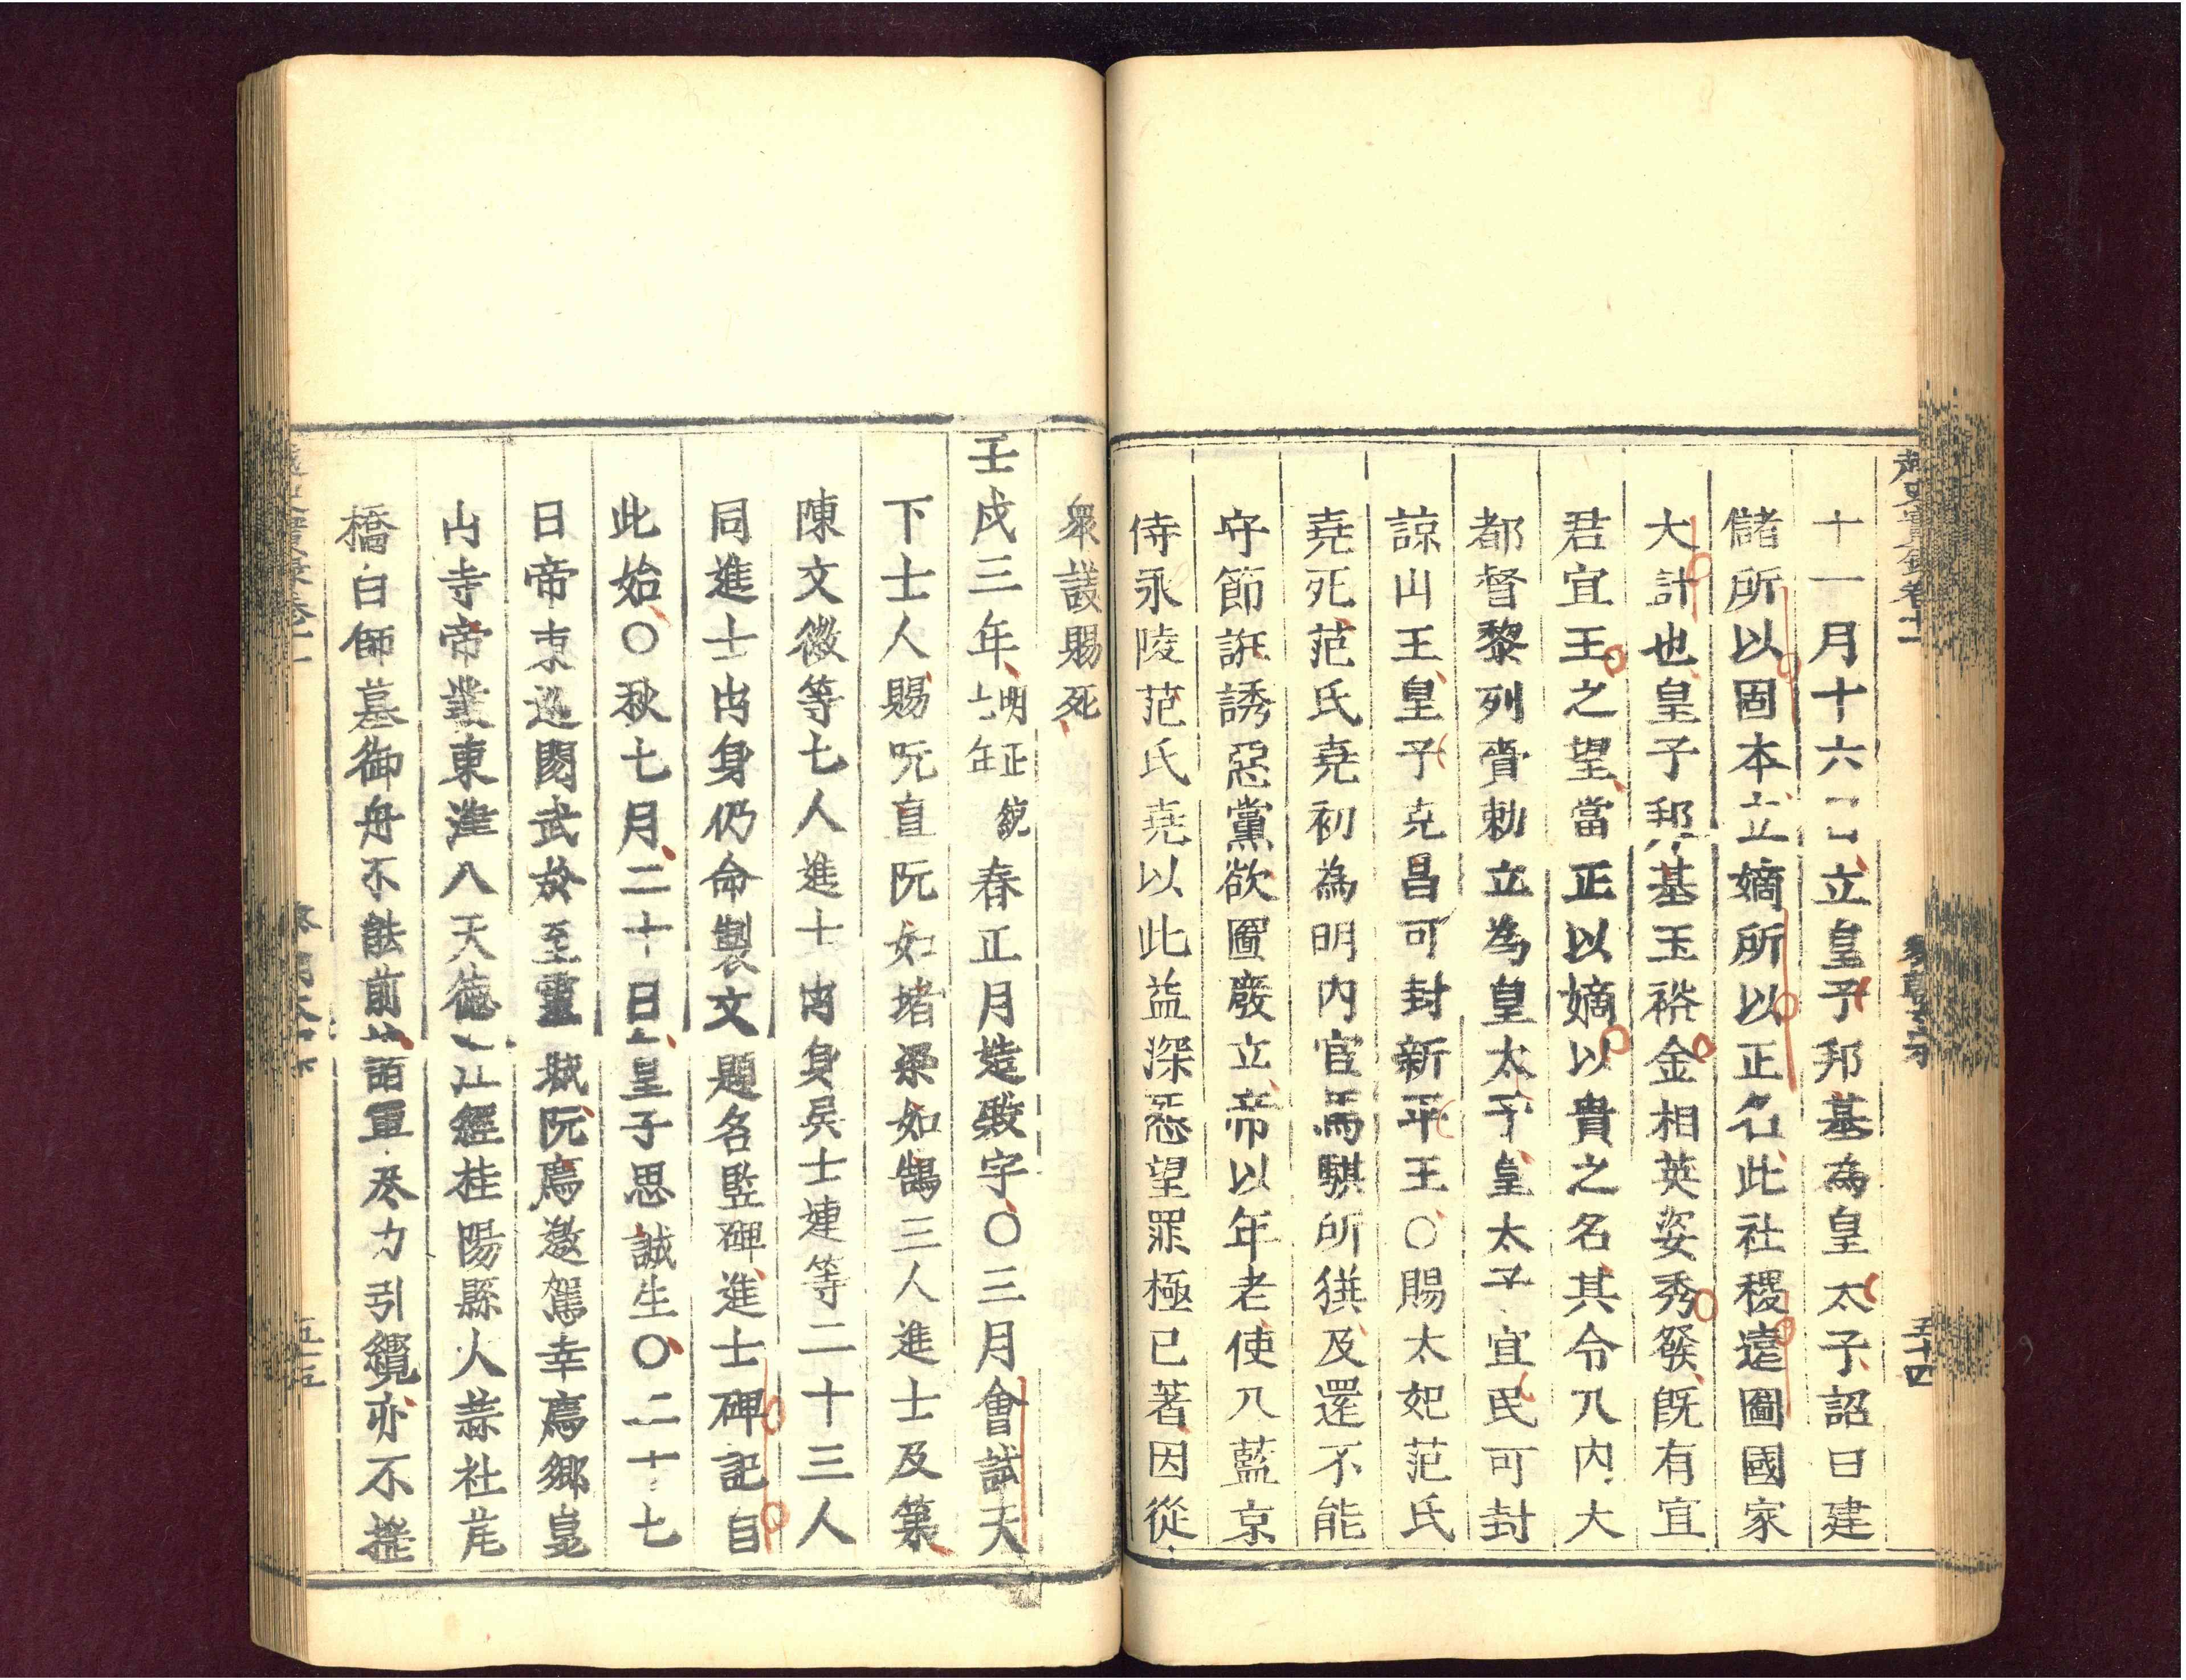 十一月十六日立皇子邦基為皇太子詔曰建
儲所以固本立嫡所以正名此社稷遠圖國家
大計也皇子邦基玉裕金相英姿秀發既有宜
君宜王之望當正以嫡以貴之名其令入内大
都督黎列賫勅立為皇太子皇太子宜民可封
諒山王皇子克昌可封新平王〇賜太妃范氏
堯死范氏堯初為明内官馬騏所獲及還不能
守節誑誘惡黨欲圖廢立帝以年老使入藍京
侍永陵范氏堯以此益深怨望罪極已著因從
衆議賜死
壬戌三年明正統七年春正月造殿宇〇三月會試天
下士人賜阮直阮如堵梁如鵠三人進士及第
陳文徽等七人進士出身吳士連等二十三人
同進士出身仍命製文題名竪碑進士碑記自
此始〇秋七月二十日皇子思誠生〇二十七
日帝東巡閱武於至靈城阮廌邀駕幸廌鄉崑
山寺帝叢東津八天德江經桂陽縣人蒜社芘
橋白師墓御舟不能前招軍尽力引纜亦不推